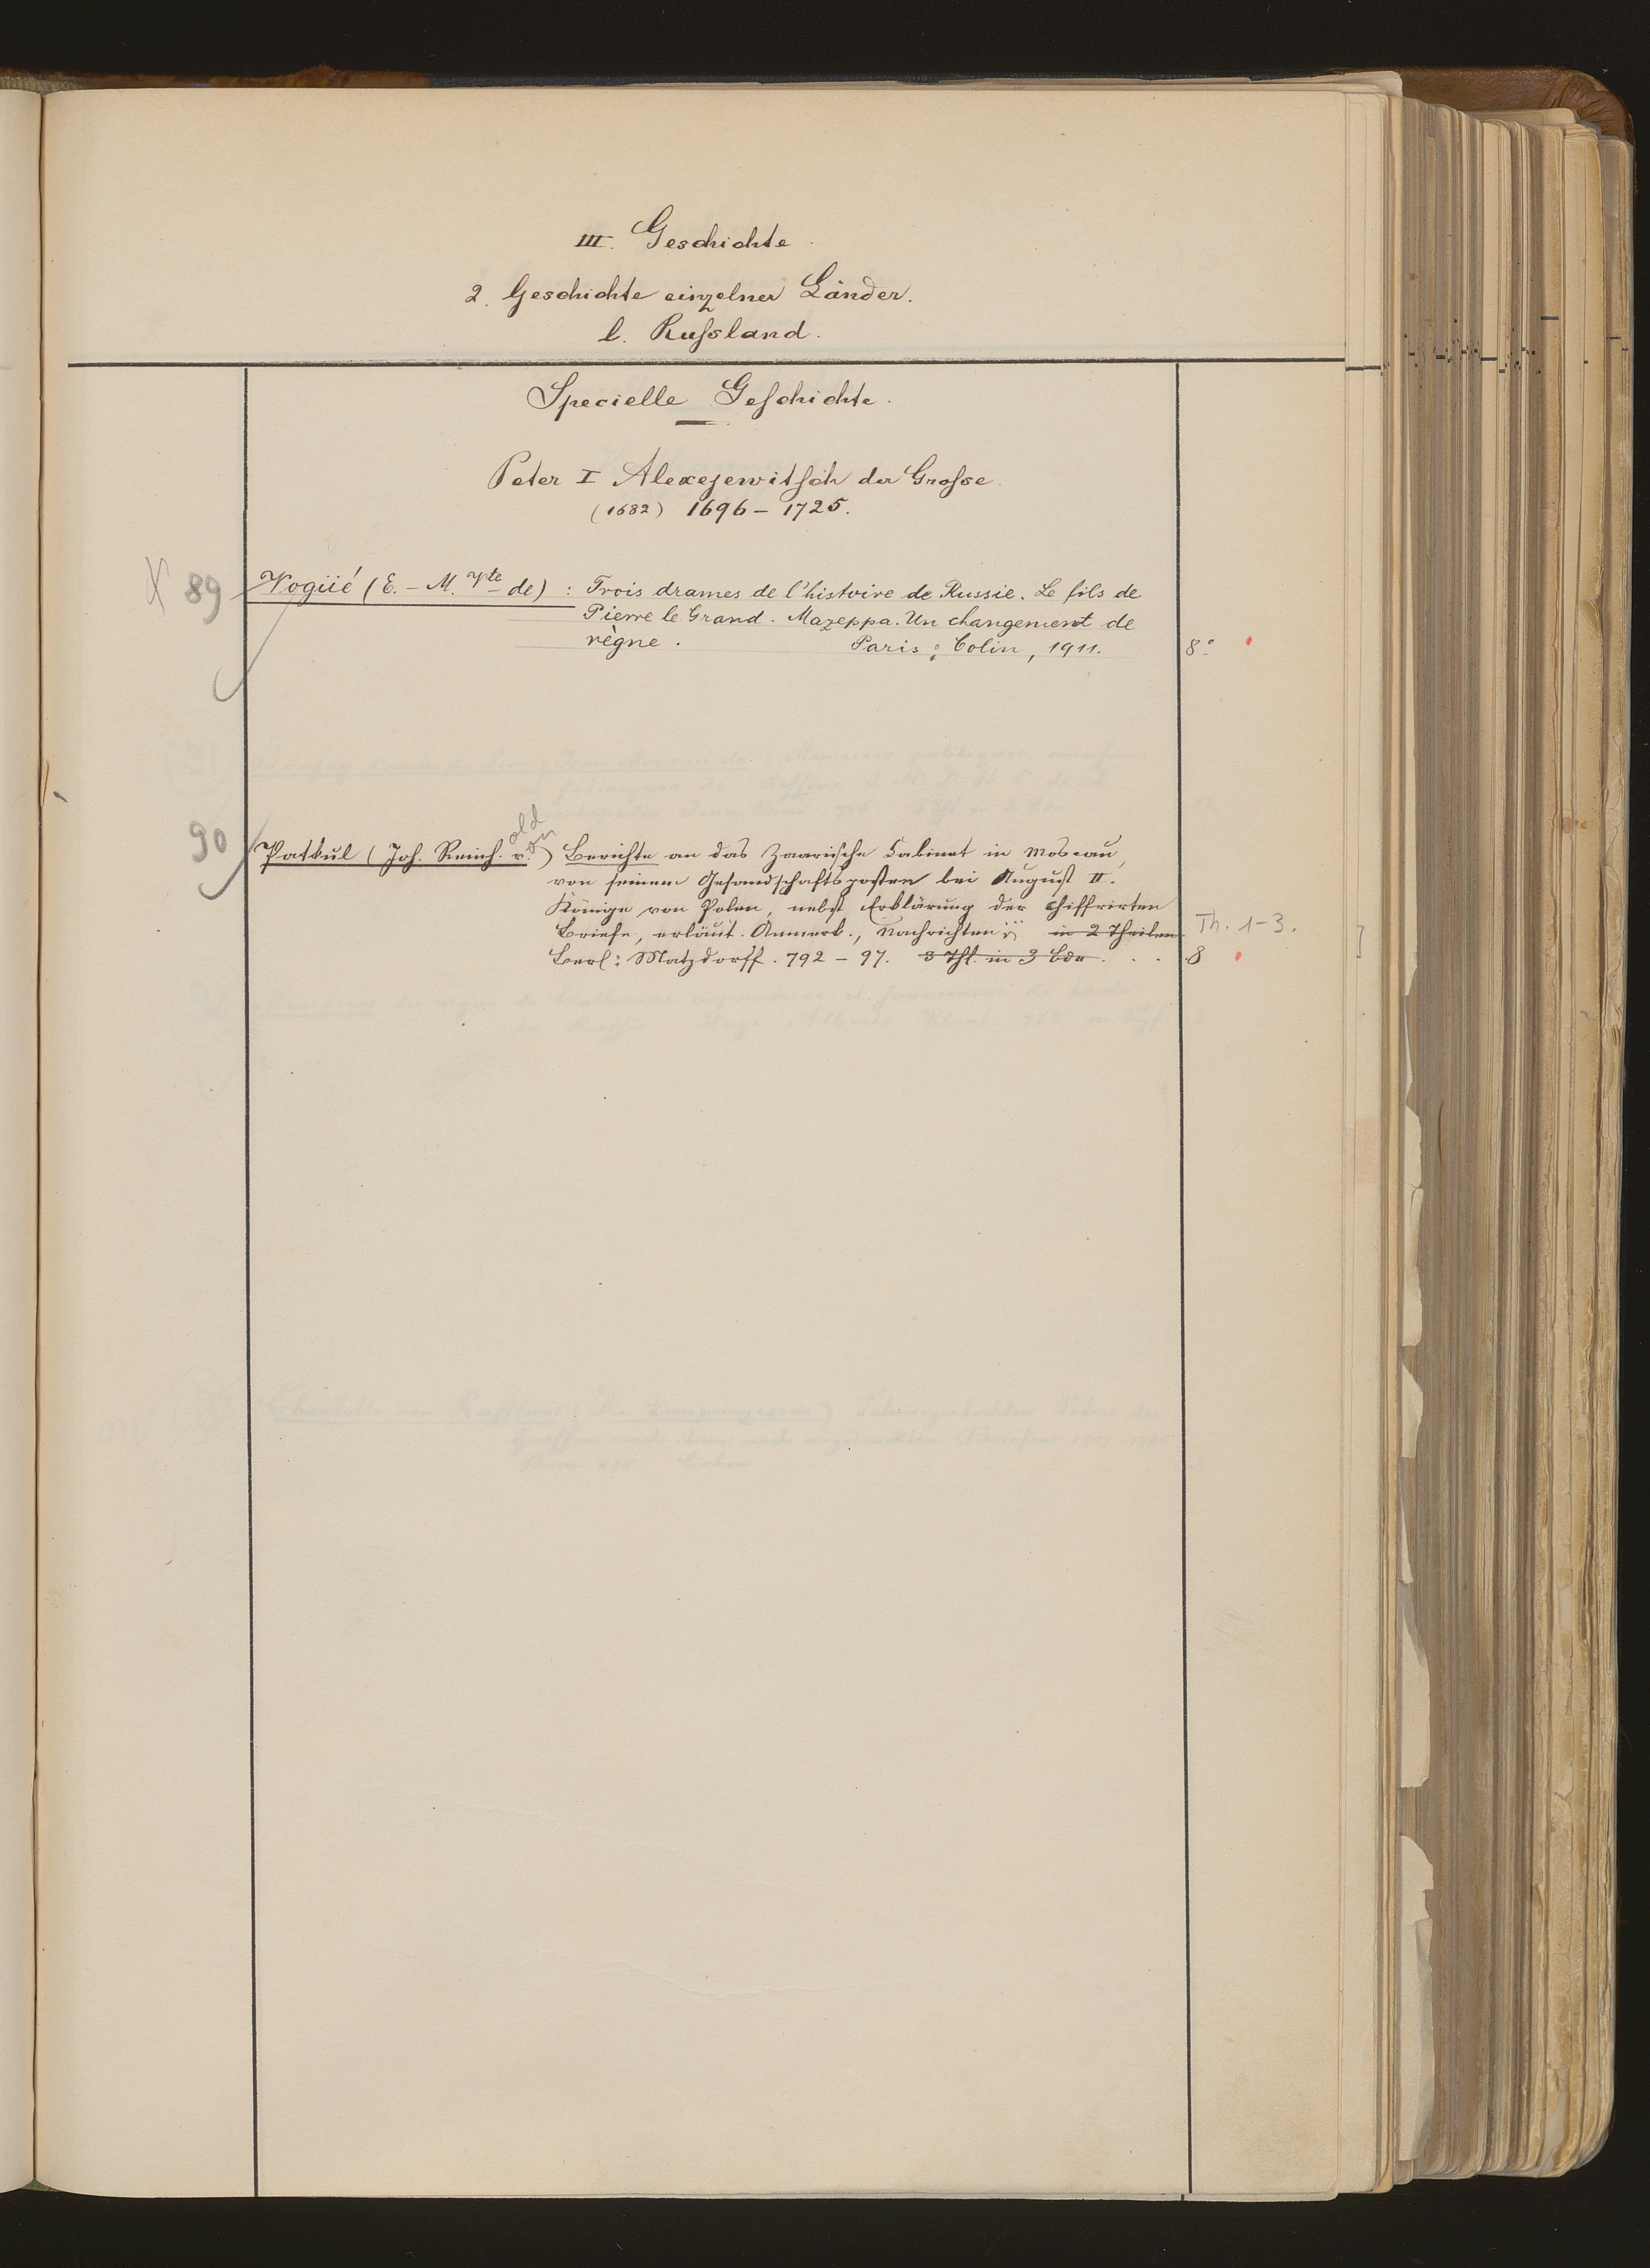 III. Geschichte
2. Geschichte einzelner Länder.
l. Russland.
Specielle Geschichte.
Peter I Alexejewitsch der Grosse.
(1682) 1696 – 1725.
X 89 Vogüé (E. – M. Vte de) : Trois drames de l'histoire de Russie. Le fils de
Pierre le Grand. Mazeppa. Un changement de
règne. Paris : Colin, 1911. 8°
old
on
90 Patkul (Joh. Reinh. v.) Berichte an das Zaarische Cabinet in Moscau,
von seinem Gesandschaftsposten bei August II.
Könige von Polen, nebst Erklärung der chiffrirten
Briefe, erläut. Anmerk., Nachrichten in 2 Theilen Th. 1-3.
Berl: Matzdorff. 792 – 97. 3 Thl. in 3 Bdn . . . 8